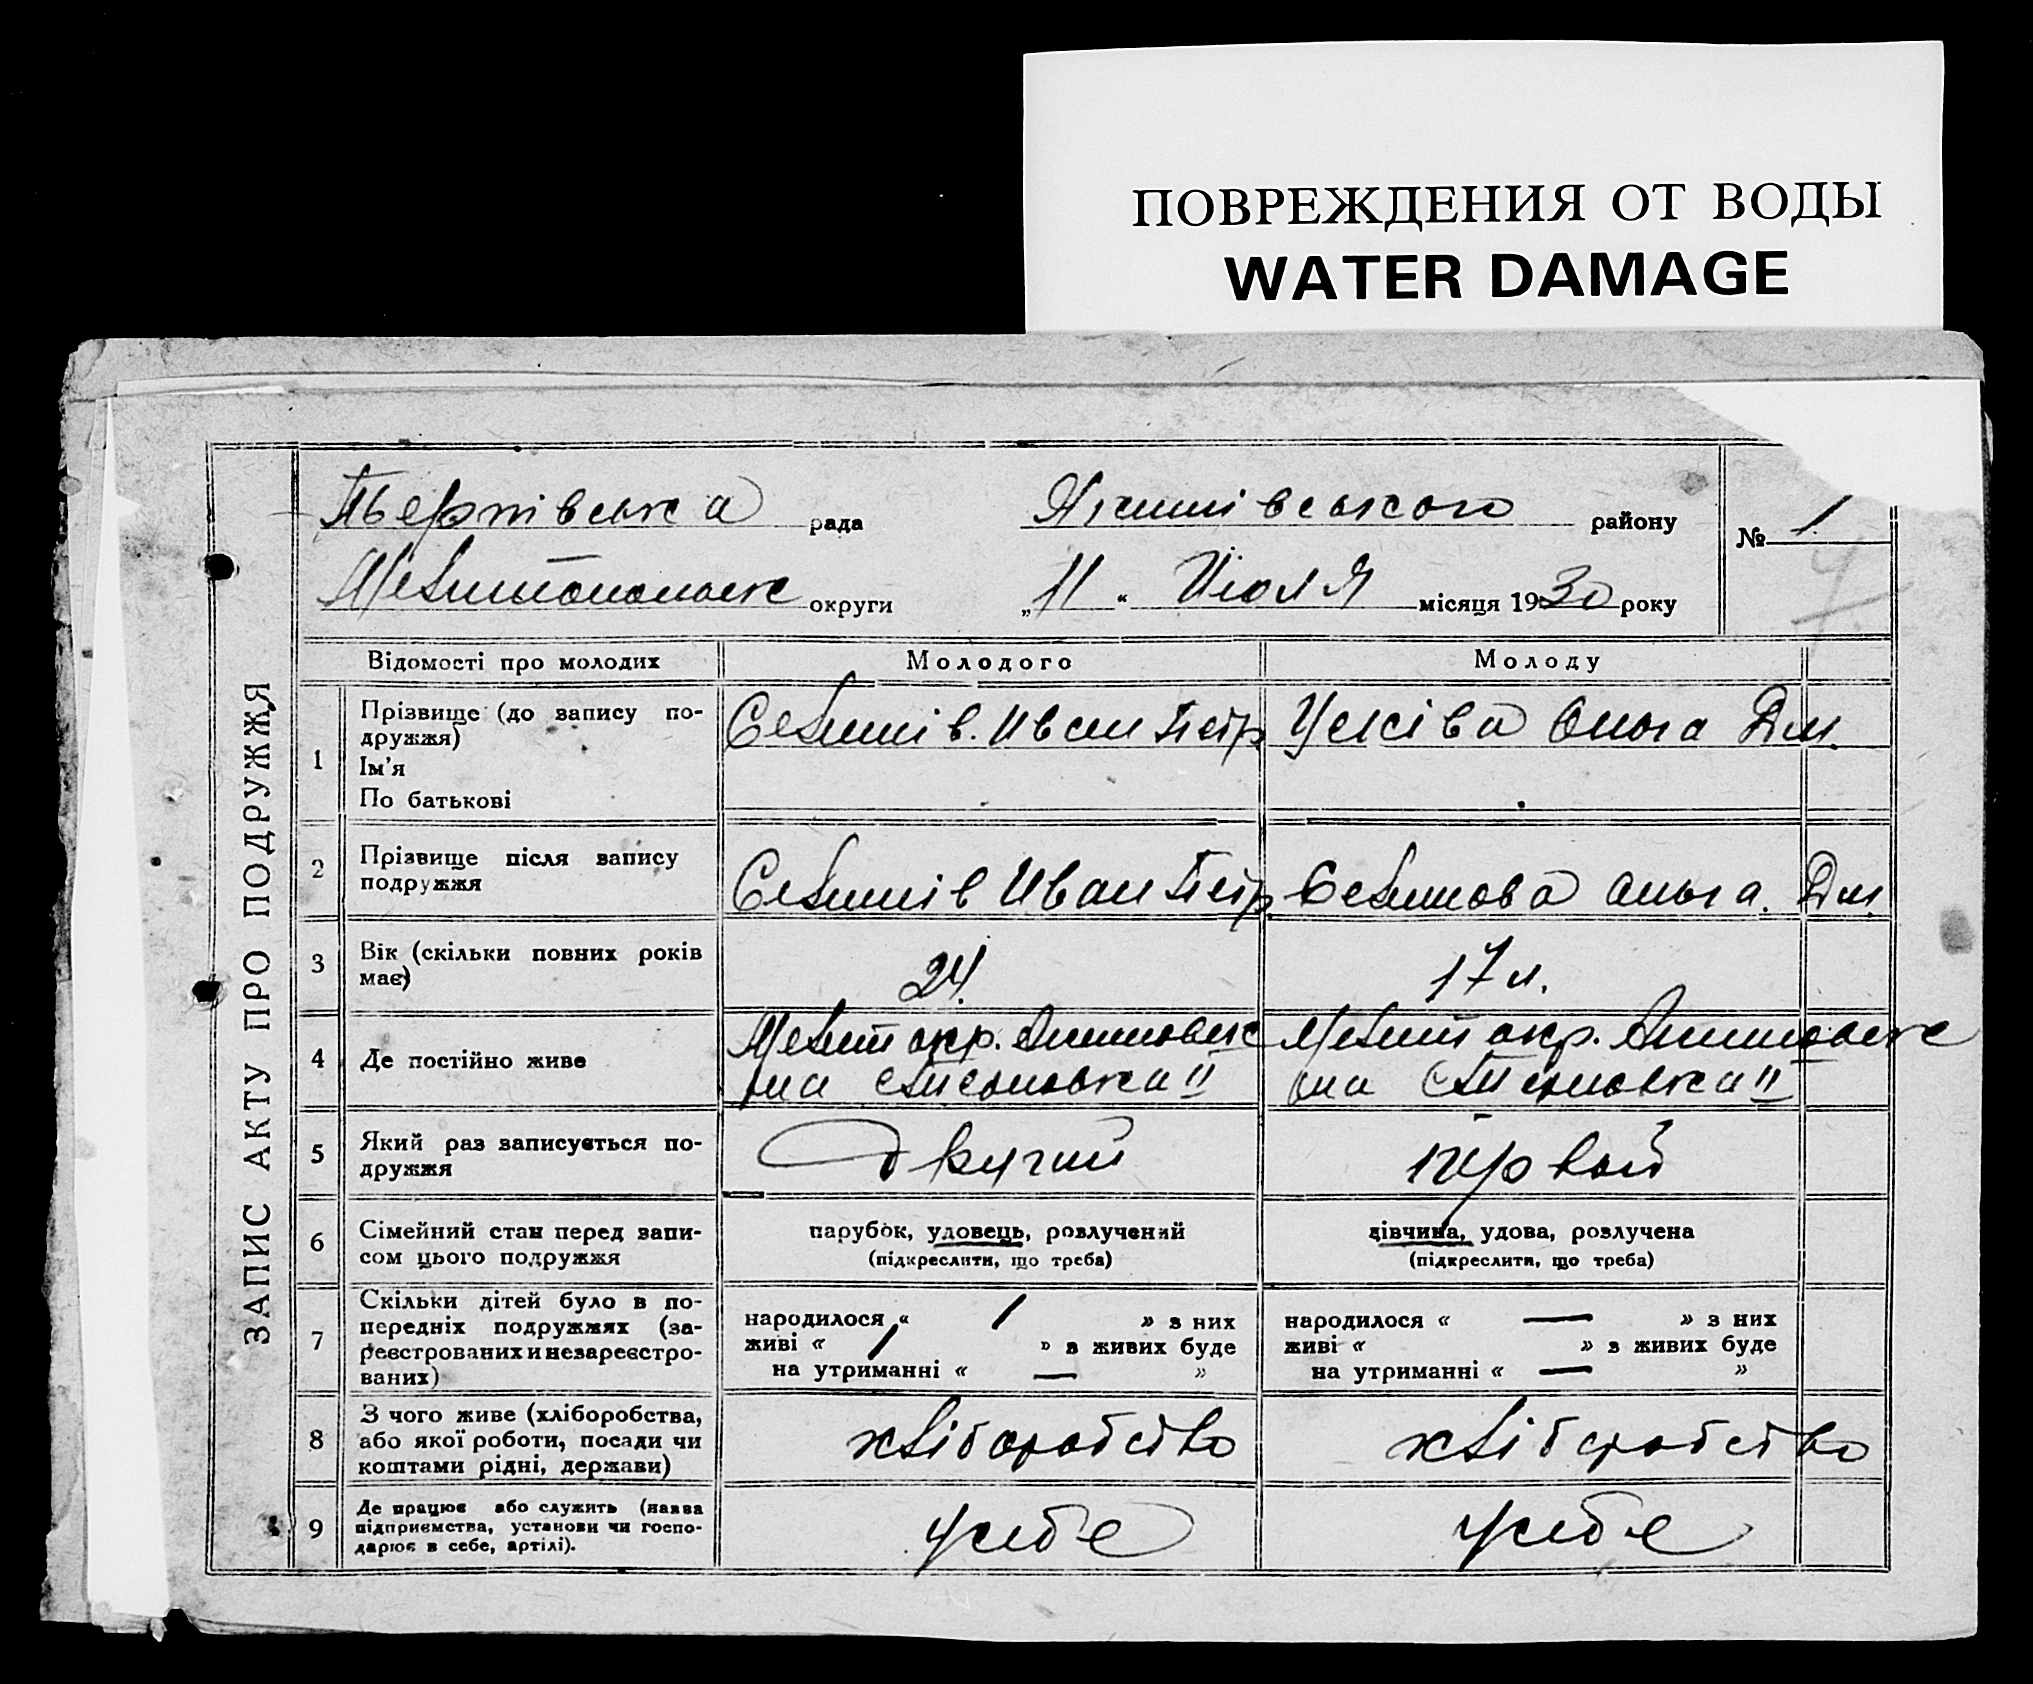 ПОВРЕЖДЕНИЯ ОТ ВОДЫ
WATER DAMAGE
ЗАПИС АКТУ ПРО ПОДРУЖЖЯ
рада
району
№ 1
округи „11“ Июля місяця 1930 року
Відомості про молодих
Молодого
Молоду
1
Прізвище (до запису по-
дружжя)
Ім'я
По батькові
Іван Петр
Ольга Дм.
2
Прізвище після запису
подружжя
Іван Петр
Ольга. Дм.
3
Вік (скільки повних років
має)
24.
17 л.
4
Де постійно живе
Меліт окр.
Меліт окр.
5
Який раз записується по-
дружжя
Другий
первый
6
Сімейний стан перед запи-
сом цього подружжя
парубок, удовець, розлучений
(підкреслити, що треба)
дівчина, удова, розлучена
(підкреслити, що треба)
7
Скільки дітей було в по-
передніх подружжях (за-
реєстрованих и незареєстро-
ваних)
народилося « 1 » з них
живі « 1 » з живих буде
на утриманні « — »
народилося « — » з них
живі « » з живих буде
на утриманні « — »
8
З чого живе (хліборобства,
або якої роботи, посади чи
коштами рідні, держави)
хліборобство
хліборобство
9
Де працює або служить (назва
підприємства, установи чи госпо-
дарює в себе, артілі).
у себе
у себе